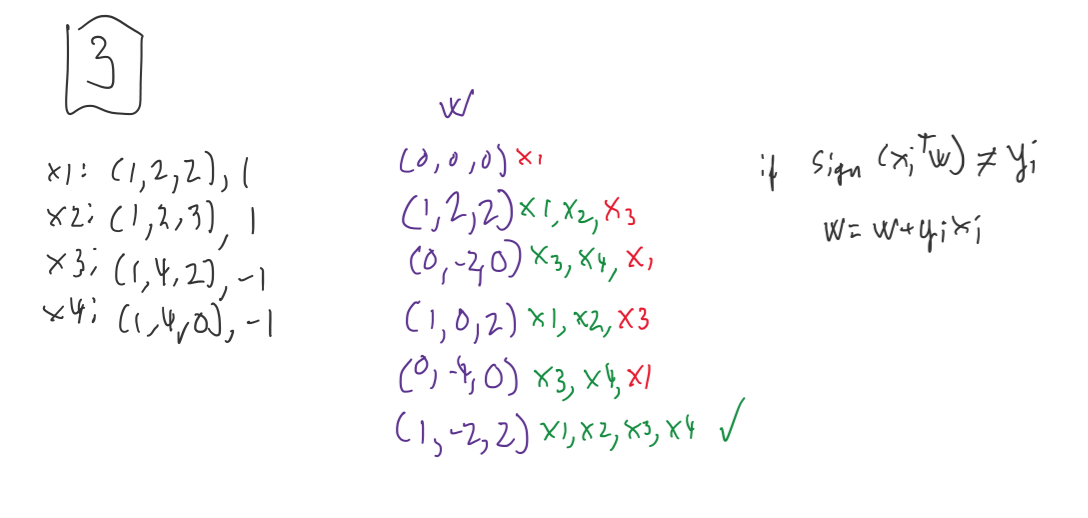 3
w
x1: (1,2,2), 1
x2: (1,2,3), 1
x3; (1,4,2), -1
x4: (1,4,0), -1
(0,0,0) x1
(1,2,2) x1,x2,x3
(0,-2,0) x3,x4,x1
(1,0,2) x1,x2,x3
(0,-4,0) x3,x4,x1
(1,-2,2) x1,x2,x3,x4 ✓
if sign (xᵢᵀw) ≠ yᵢ
w = w+yᵢxᵢ